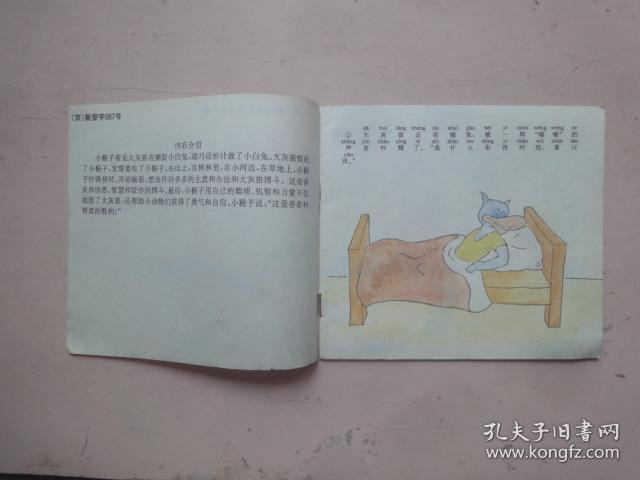 (京)新登字087号
内容介绍
小猴子看见大灰狼在捕捉小白兔,就巧设妙计救了小白兔,大灰狼恨死
了小猴子,发誓要吃了小猴子,在山上,在树林里,在小河边,在草地上,小猴
子针锋相对,开动脑筋,想出许许多多的主意和办法和大灰狼搏斗。这是善
良和凶恶、智慧和狡诈的搏斗。最后,小猴子用自己的聪明、机智和力量不仅
战胜了大灰狼,还帮助小动物们获得了勇气和自信。小猴子说:“这是善者和
智者的胜利!”
dà huī láng zhèng zài shuì jiào bèi yí zhèn wēng wēng de
①大灰狼正在睡觉,被一阵“嗡嗡”的
shēng yīn chǎo xǐng le shì shén me dōng xi chǎo wǒ zhēn tǎo
声音吵醒了。“是什么东西吵我,真讨
yàn
厌。”
孔夫子旧书网
www.kongfz.com